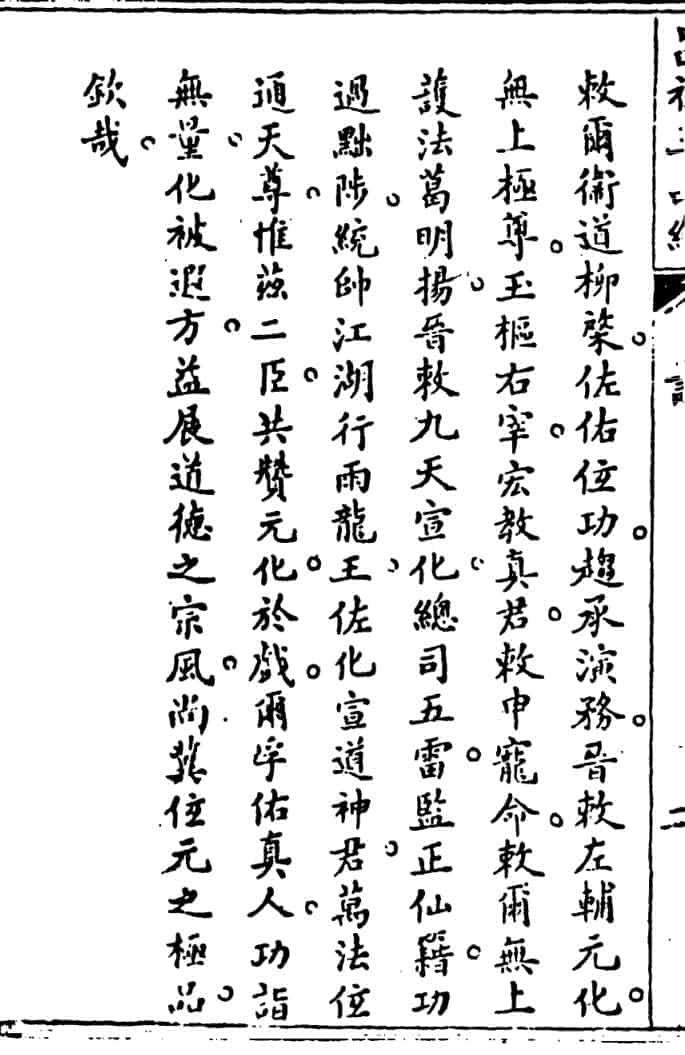 敕爾衛道柳棨。佐佑位功。趨承演務。晉敕左輔元化。
無上極尊。玉樞右宰。宏教真君。敕申寵命。敕爾無上
護法葛明揚。晉敕九天宣化。總司五雷。監正仙籍。功
過黜陟。統帥江湖行雨龍王。佐化宣道神君。萬法位
通天尊。惟茲二臣。共贊元化。於戲。爾孚佑真人。功詣
無量。化被遐方。益展道德之宗風。尚冀位元之極品。
欽哉。